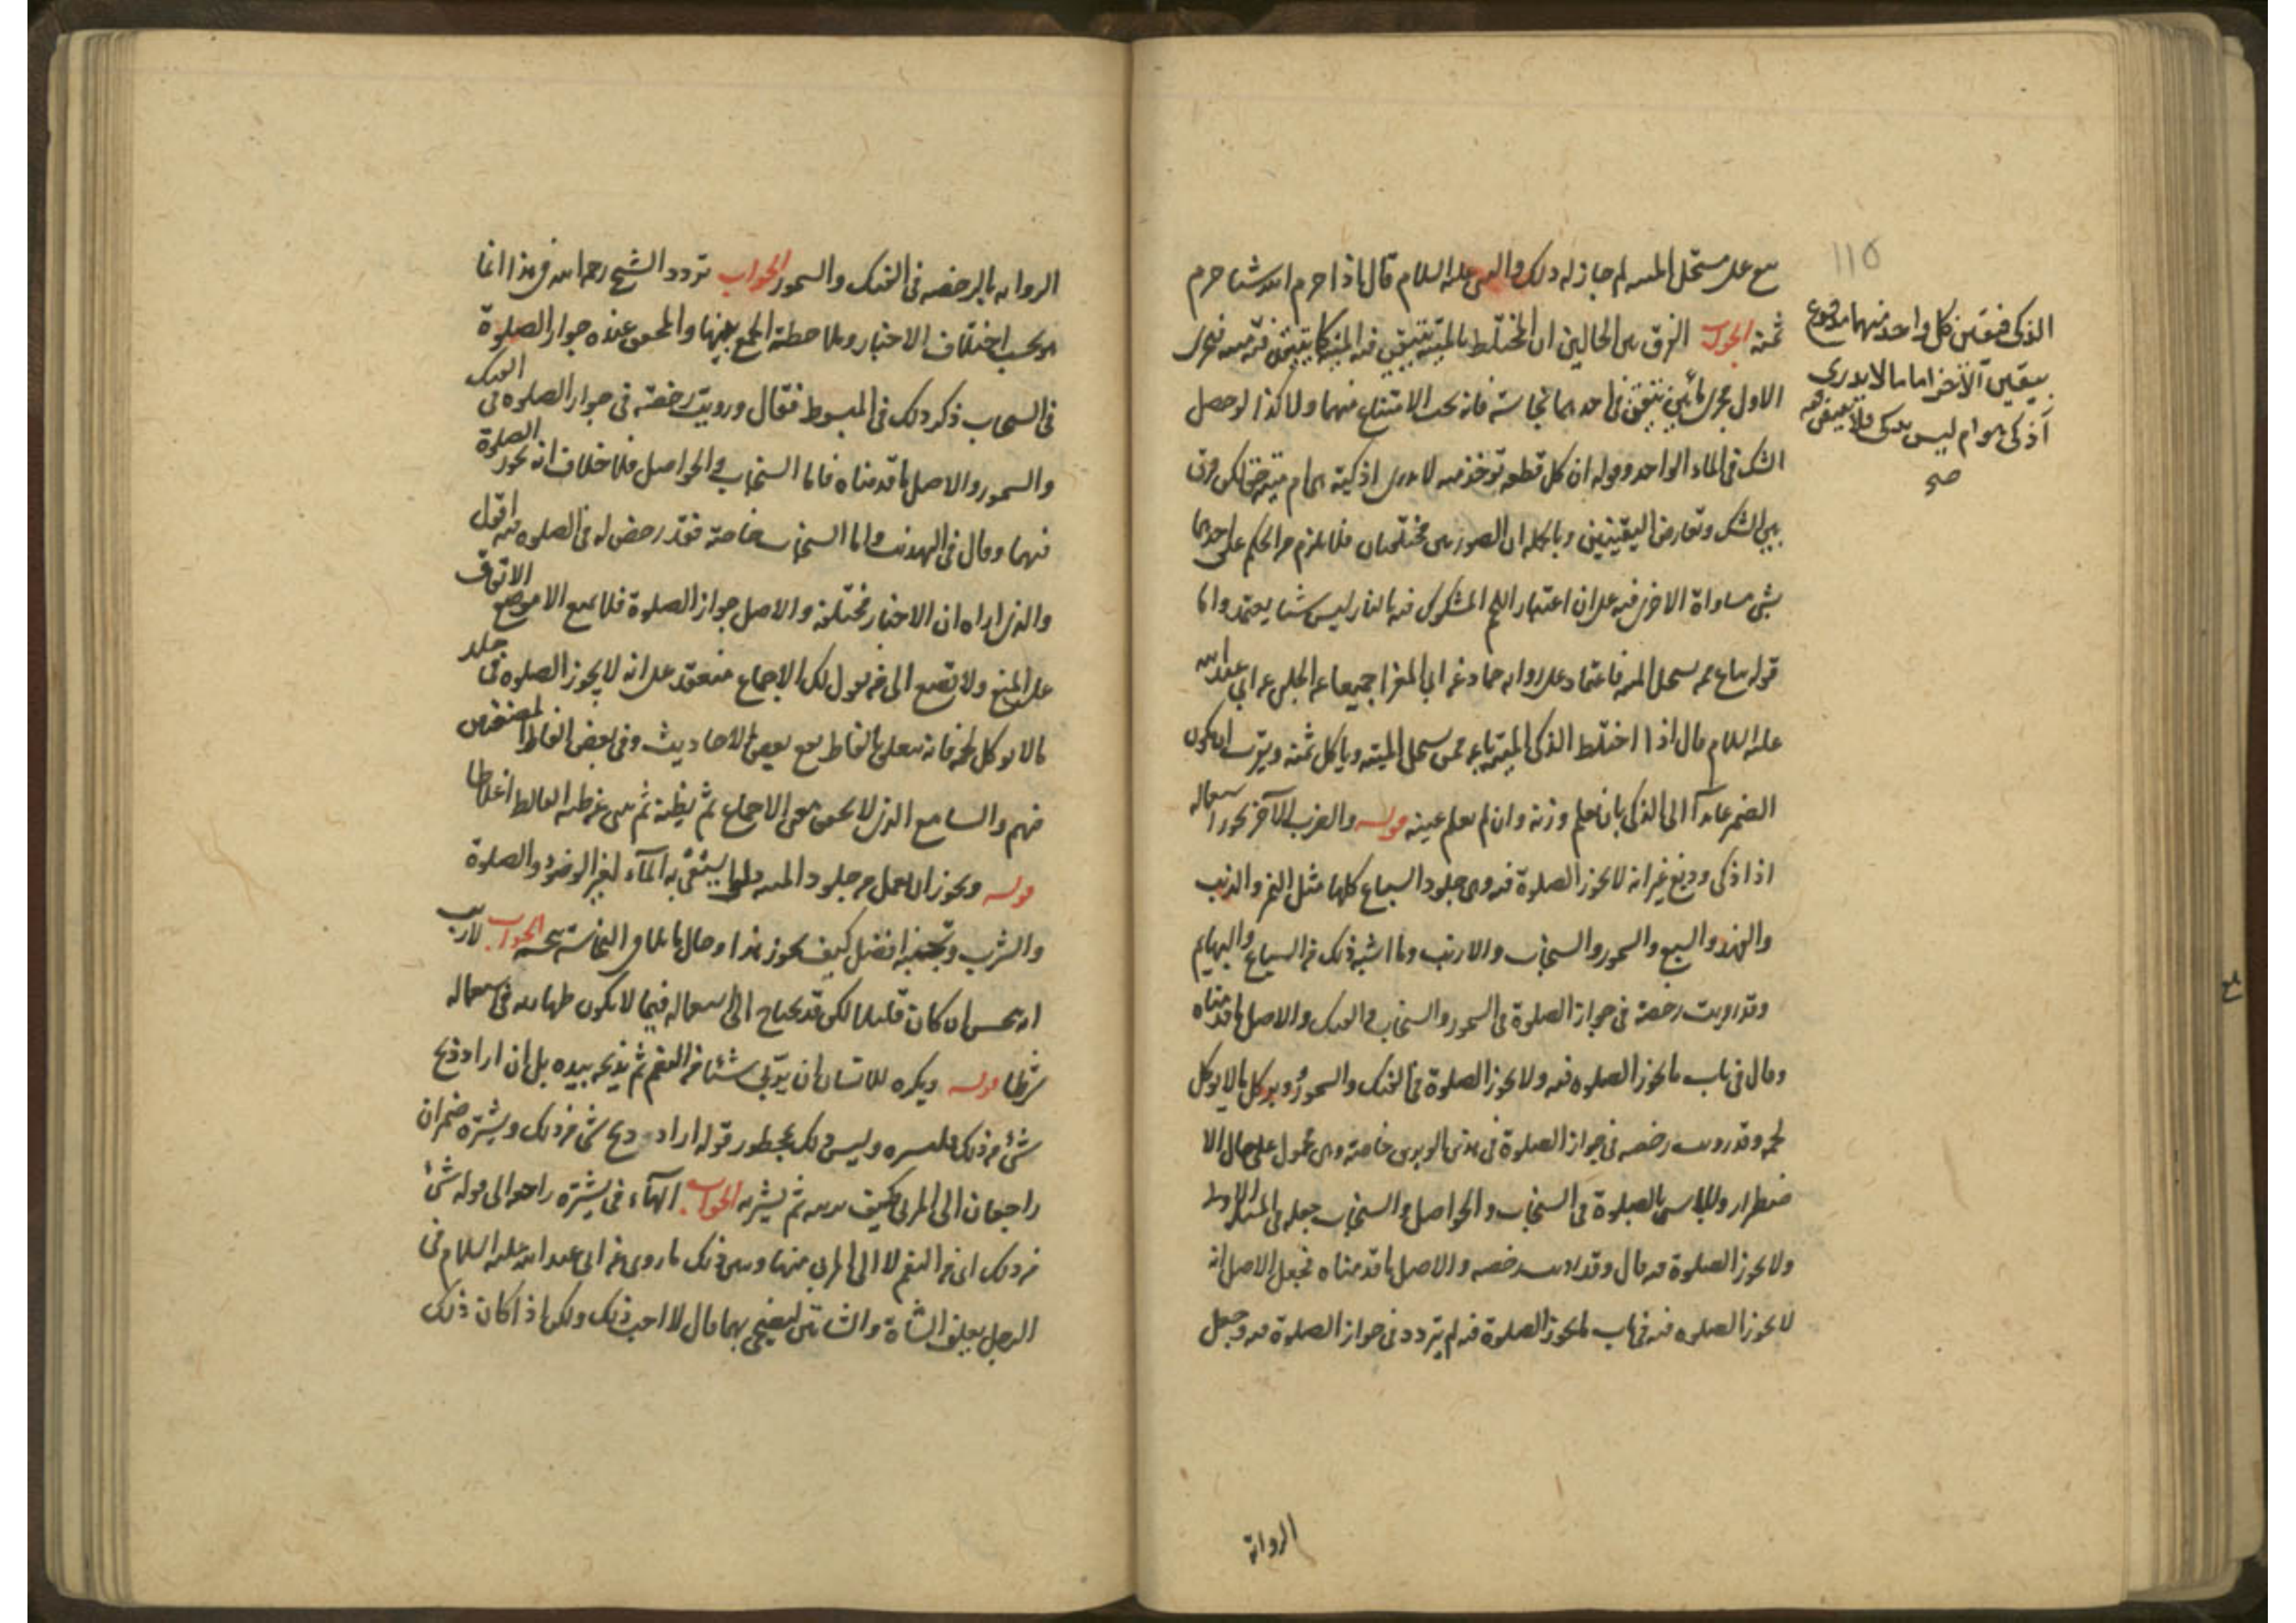 بيع على مستحل الميته لم جاز له ذلك والنبي عليه السلام قال اذا حرم الله شيئا حرم
ثمنه الجواب الفرق بين الحالين ان المختلط بالميتة تتيقن فيه الميتة كما يتيقن فيه
الاول مجرى مائين تتيقن في احدهما نجاسة فانه يجب الامتناع منهما ولا كذا لو حصل
الشك في الماء الواحد وقوله ان كل قطعه توخذ منه لا يدرى اذكية هي ام ميتة حق لكن فرق
بين الشك وتعارض اليقينين وبالجمله ان الصورتين مختلفتان فلا يلزم من الحكم على احديهما
بشئ مساواة الاخرى فيه على ان اعتبار اللحم المشكوك فيه بالنار ليس شيئا يعتمد واما
قوله يباع على مستحل الميته فاعتماد على روايه حماد عن ابي المغرا جميعا عن الحلبي عن ابي عبد الله
عليه السلام قال اذا اختلط الذكى الميتة باعه ممن يستحل الميتة وياكل ثمنه ويقرب ان يكون
الضمير عائدا الى الذكى بان يعلم وزنه وان لم يعلم عينه قوله والضرب الآخر يجوز استعماله
اذا ذكى ودبغ غير انه لا يجوز الصلوة فيه وهى جلود السباع كلها مثل النمر والذئب
والفهد والسبع والسمور والسنجاب والارنب وما اشبه ذلك من السباع والبهايم
وقد رويت رخصة في جواز الصلوة في السمور والسنجاب والفنك والاصل ما قدمناه
وقال في باب ما يجوز الصلوه فيه ولا يجوز الصلوة في الفنك والسمور ووبر كل ما لا يوكل
لحمه وقد رويت رخصه في جواز الصلوة في هذين الوبرين خاصة وهى محمول على حال الا
ضطرار ولا باس بالصلوة في السنجاب والحواصل والسنجاب جعله في الاول
ولا يجوز الصلوة فيه قال وقد رويت رخصه والاصل ما قدمناه فجعل الاصل انه
لا يجوز الصلوه فيه في باب ما يجوز الصلوة فيه لم يتردد في جواز الصلوة فيه وجعل
115
الذكى فتيقن كل واحد منهما مدفوع
بيقين الآخر اما ما لا يدرى
أذكى هو ام ليس بذكى فلا تيقن فيه
صح
الرواية
الروايه بالرخصه في الفنك والسمور الجواب تردد الشيخ رحمه الله في هذا انما
هو بحسب اختلاف الاخبار وملاحظة الجمع بينها والمحقق عنده جواز الصلوة
في السنجاب ذكر ذلك في المبسوط فقال ورويت رخصة في جواز الصلوه في الفنك
والسمور والاصل ما قدمناه فاما السنجاب والحواصل فلا خلاف انه يجوز الصلوة
فيهما وقال في النهاية واما السنجاب خاصة فقد رخص له في الصلوه فيه اقول
والذى اراه ان الاخبار مختلفة والاصل جواز الصلوة فلا يمنع الا موضع الاتفاق
على المنع ولا يصغى الى من يقول لك الاجماع منعقد على انه لا يجوز الصلوه في جلد
مالا يوكل لحمه فانه تعلق بالفاظ بعض الاحاديث وفى بعض الفاظ المصنفين
فيهم والسامع الذى لا يحقق معنى الاجماع ثم يظنه ثم يبنى عن ظنه الغالط اغلاطا
قوله ويجوز ان يعمل من جلود الميته دلو يستقى به الماء لغير الوضوء والصلوة
والشرب وتجنبه افضل كيف يجوز هذا وحال ما يلاقى النجاسة نجسة الجواب لا ريب
انه نجس ان كان قليلا لكن قد يحتاج الى استعماله فيما لا يكون طهارته في استعماله
شرطا قوله ويكره للانسان ان يربى شيئا من الغنم ثم يذبحه بيده بل ان اراد ذبح
شئ من ذلك فليشتره وليس ذلك بمحظور قوله اراد ذبح شئ من ذلك ويشتره ضميران
راجعان الى المربى فكيف يربيه ثم يشتريه الجواب الهاء في يشتره راجع الى قوله شئ
من ذلك اى من الغنم لا الى المربى منها وبين ذلك ما روى عن ابى عبد الله عليه السلام في
الرجل يعلف الشاة والشاتين ليضحى بهما قال لا احب ذلك ولكن اذا كان ذلك